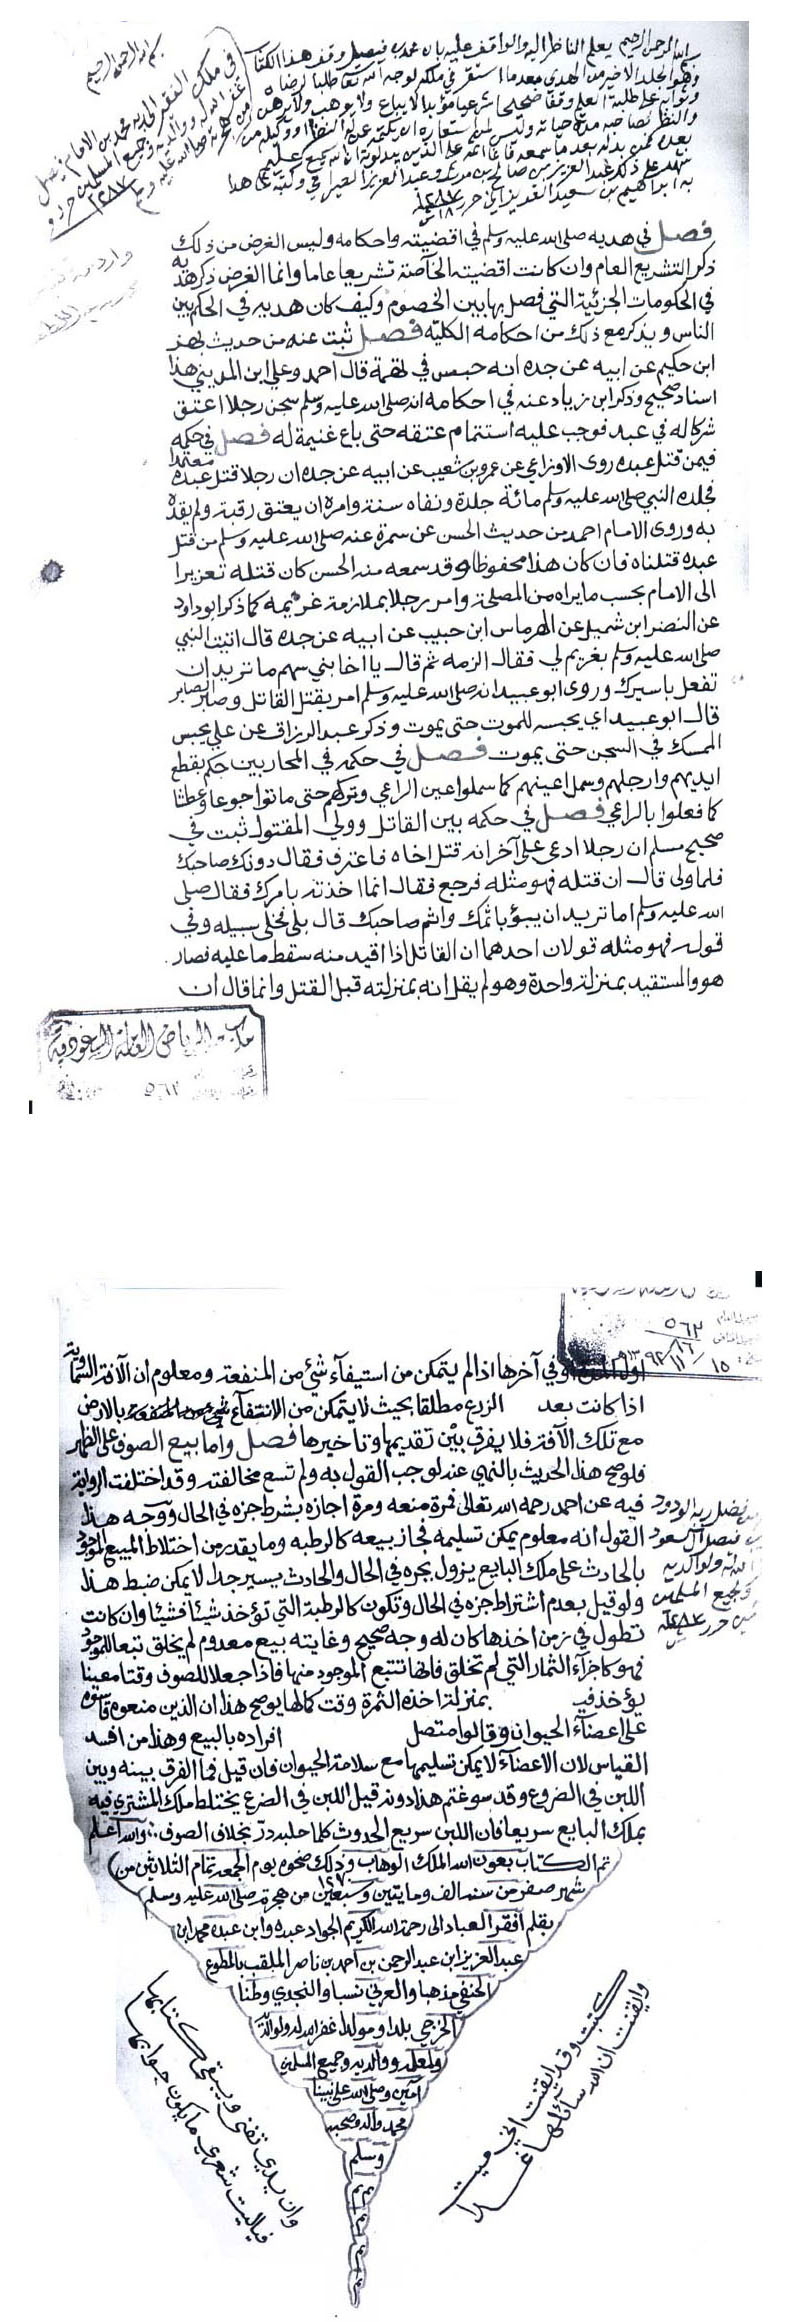 بسم الله الرحمن الرحيم يعلم الناظر اليه والواقف عليه بان محمد بن فيصل وقف هذا الكتاب
وهو الجلد الاخير من الهدي بعد ما استقر في ملكه لوجه الله تعا طلبا لرضاه
وثوابه على طلبة العلم وقفا صحيحا شرعيا مؤبدا لا يباع ولا يوهب ولا يرهن
بسم الله الرحمن الرحيم
في ملك الفقير الى الله محمد بن الامام فيصل
غفر الله له ولوالديه وجميع المسلمين
فصل في هديه صلى الله عليه وسلم في اقضيته واحكامه وليس الغرض من ذلك
ذكر التشريع العام وان كانت اقضيته الخاصة تشريعا عاما وانما الغرض ذكر هديه
في الحكومات الجزئية التي فصل بها بين الخصوم وكيف كان هديه في الحكم بين
الناس ويذكر مع ذلك من احكامه الكلية فصل ثبت عنه من حديث بهز
ابن حكيم عن ابيه عن جده انه حبس في تهمة قال احمد وعلي ابن المديني هذا
اسناد صحيح وذكر ابن زياد عنه في احكامه انه صلى الله عليه وسلم سجن رجلا اعتق
شركا له في عبد فوجب عليه استتمام عتقه حتى باع غنيمة له فصل في حكمه
فيمن قتل عبده روى الاوزاعي عن عمرو بن شعيب عن ابيه عن جده ان رجلا قتل عبده متعمدا
فجلده النبي صلى الله عليه وسلم مائة جلدة ونفاه سنة وامره ان يعتق رقبة ولم يقده
به وروى الامام احمد من حديث الحسن عن سمرة عنه صلى الله عليه وسلم من قتل
عبده قتلناه فان كان هذا محفوظا وقد سمعه منه الحسن كان قتله تعزيرا
الى الامام بحسب ما يراه من المصلحة وامر رجلا بملازمة غريمه كما ذكر ابو داود
عن النضر ابن شميل عن الهرماس ابن حبيب عن ابيه عن جده قال اتيت النبي
صلى الله عليه وسلم بغريم لي فقال الزمه ثم قال يا اخا بني سهم ما تريد ان
تفعل باسيرك وروى ابو عبيد انه صلى الله عليه وسلم امر بقتل القاتل وصبر الصابر
قال ابو عبيد اي يحبسه للموت حتى يموت وذكر عبد الرزاق عن علي يحبس
الممسك في السجن حتى يموت فصل في حكمه في المحاربين حكم بقطع
ايديهم وارجلهم وسمل اعينهم كما سملوا عين الراعي وتركهم حتى ماتوا جوعا وعطشا
كما فعلوا بالراعي فصل في حكمه بين القاتل وولي المقتول ثبت في
صحيح مسلم ان رجلا ادعى على آخر انه قتل اخاه فاعترف فقال دونك صاحبك
فلما ولى قال ان قتله فهو مثله فرجع فقال انما اخذته بامرك فقال صلى
الله عليه وسلم اما تريد ان يبوؤ باثمك واثم صاحبك قال بلى فخلى سبيله وفي
قوله فهو مثله قولان احدهما ان القاتل اذا اقيد منه سقط ما عليه فصار
هو والمستقيد بمنزلة واحدة وهو لم يقل انه بمنزلته قبل القتل وانما قال ان
مكتبة الرياض العامة السعودية
٥٦٢
٥٦٢
وفي آخرها اذا لم يتمكن من استيفآء شئ من المنفعة ومعلوم ان الآفة السماوية
اذا كانت بعد الزرع مطلقا بحيث لا يتمكن من الانتفاع بالارض
مع تلك الآفة فلا يفرق بين تقديمها وتاخيرها فصل واما بيع الصوف على الظهر
فلو صح هذا الحديث بالنهي عنه لوجب القول به ولم تسع مخالفته وقد اختلفت الرواية
فيه عن احمد رحمه الله تعالى فمرة منعه ومرة اجازه بشرط جزه في الحال ووجه هذا
القول انه معلوم يمكن تسليمه فجاز بيعه كالرطبه وما يقدر من اختلاط المبيع الموجود
بالحادث على ملك البايع يزول بجزه في الحال والحادث يسير جدا لا يمكن ضبط هذا
ولو قيل بعدم اشتراط جزه في الحال وتكون كالرطبة التي تؤخذ شيئا فشيئا وان كانت
تطول في زمن اخذها كان له وجه صحيح وغايته بيع معدوم لم يخلق تبعا للموجود
فهو كاجزاء الثمار التي لم تخلق فانها تتبع الموجود منها فاذا جعلا للصوف وقتا معينا
يؤخذ فيه بمنزلة اخذه الثمرة وقت كمالها يوضح هذا ان الذين منعوه قاسوه
على اعضآء الحيوان وقالوا متصل افراده بالبيع وهذا من افسد
القياس لان الاعضآء لا يمكن تسليمها مع سلامة الحيوان فان قيل فما الفرق بينه وبين
اللبن في الضروع وقد سوغتم هذا دونه قيل اللبن في الضرع يختلط ملك المشتري فيه
بملك البايع سريعا فان اللبن سريع الحدوث كلما حلبه در بخلاف الصوف والله اعلم
تم الكتاب بعون الله الملك الوهاب وذلك ضحوة يوم الجمعه تمام الثلاثين من
شهر صفر من سنه الف ومايتين وسبعين ١٢٧٠ من هجرته صلى الله عليه وسلم
بقلم افقر العباد الى رحمة الله الكريم الجواد عبده وابن عبده محمد ابن
عبد العزيز ابن عبد الرحمن بن احمد بن ناصر الملقب بالمطوع
الحنفي مذهبا والعربي نسبا والنجدي وطنا
الخرجي بلدا ومولدا غفر الله له ولوالديه
ولمعلمه ووالديه وجميع المسلمين
آمين وصلى الله على نبينا
محمد واله وصحبه
وسلم
كتبت وقد ايقنت اني ميت
وايقنت ان الله سائلها غدا
وان يدي تفنى ويبقى كتابها
فياليت شعري ما يكون جوابها